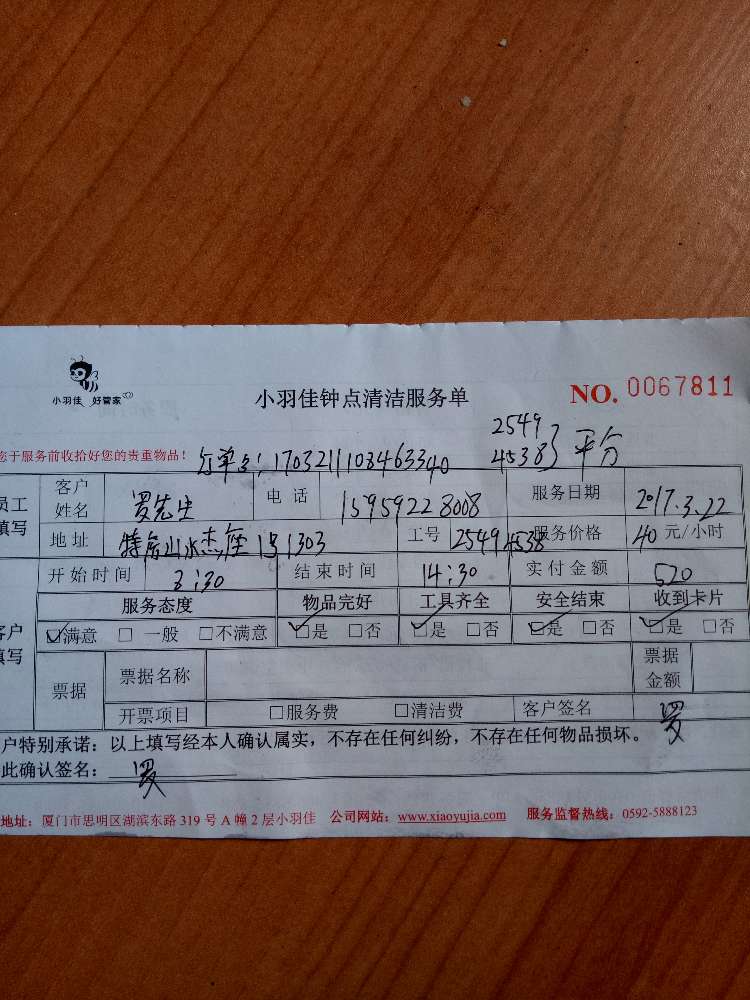 小羽佳 好管家
小羽佳钟点清洁服务单
NO. 0067811
您于服务前收拾好您的贵重物品！
订单号：1703211108463340
2549
4538 } 平分
员工填写
客户姓名 罗先生 电话 15959228008 服务日期 2017.3.22
地址 特房山水杰座 1号1303 工号 2549 4538 服务价格 40 元/小时
开始时间 8:30 结束时间 14:30 实付金额 520
客户填写
服务态度 物品完好 工具齐全 安全结束 收到卡片
☑满意 □ 一般 □不满意 ☑是 □否 ☑是 □否 ☑是 □否 ☑是 □否
票据 票据名称 票据金额
开票项目 □服务费 □清洁费 客户签名 罗
户特别承诺：以上填写经本人确认属实，不存在任何纠纷，不存在任何物品损坏。
此确认签名： 罗
地址：厦门市思明区湖滨东路 319 号 A 幢 2 层小羽佳 公司网站：www.xiaoyujia.com 服务监督热线：0592-5888123